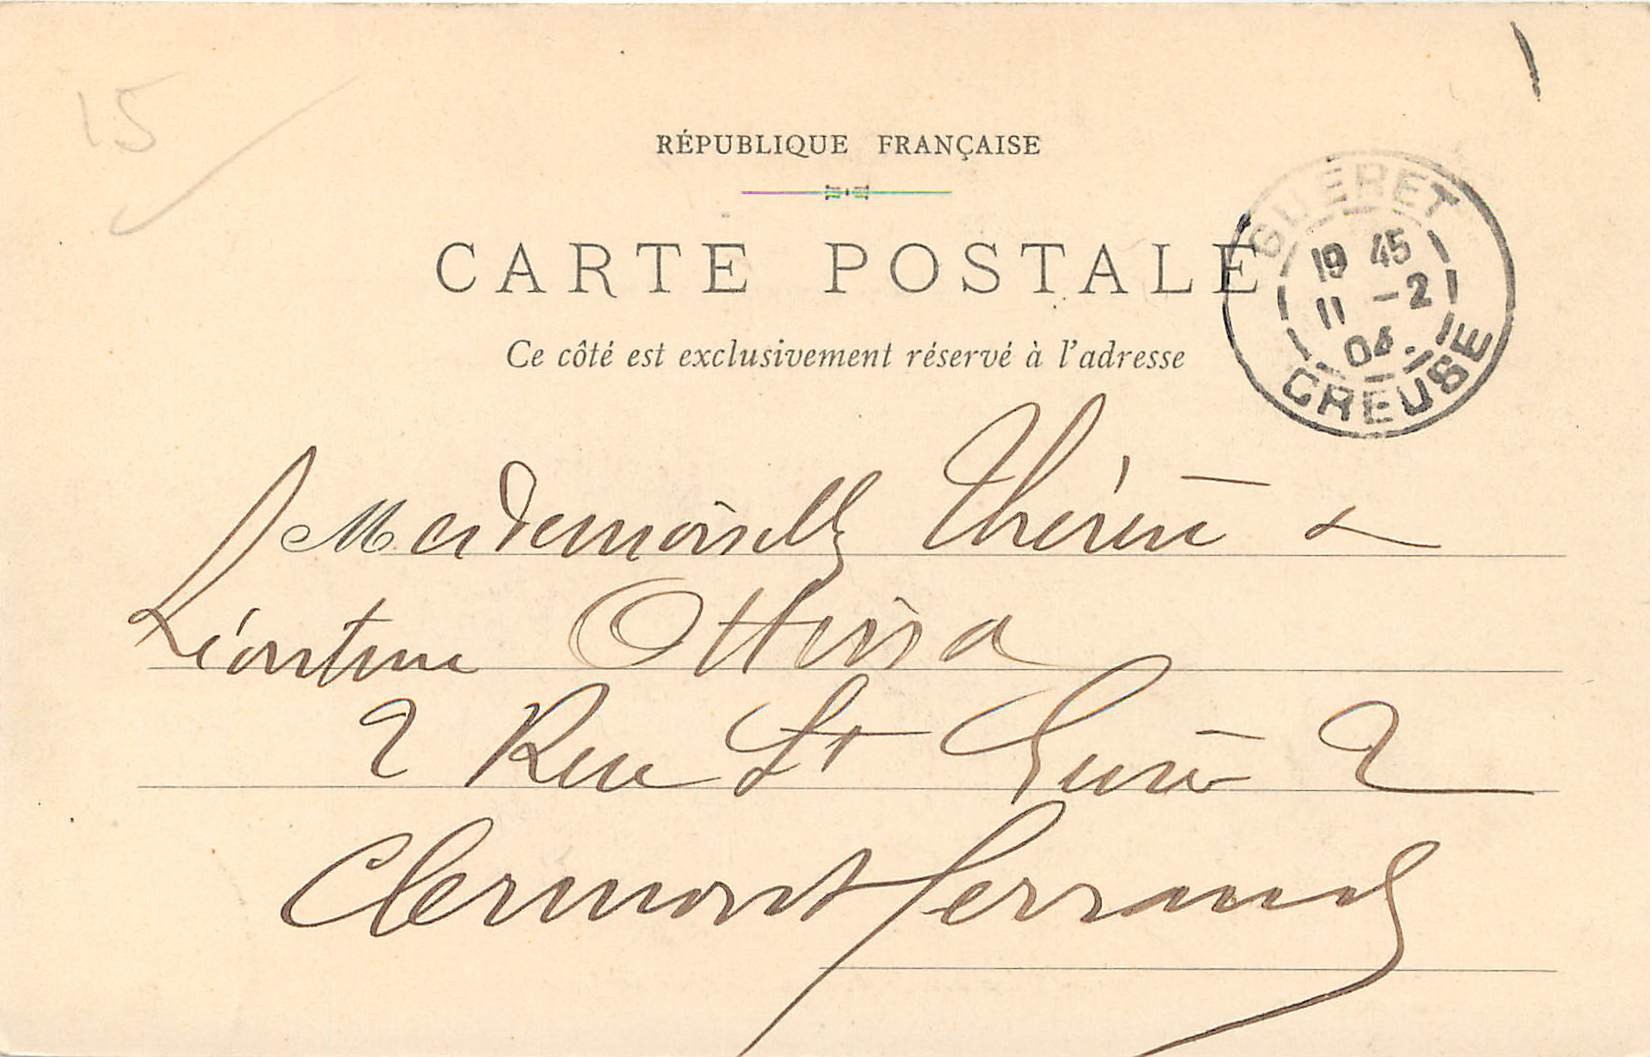 15
RÉPUBLIQUE FRANÇAISE
CARTE POSTALE
Ce côté est exclusivement réservé à l'adresse
GUERET
19 45
11 -2
04
CREUSE
Mademoiselle Thérèse &
Léontine
2 Rue St 2
Clermont Ferrand